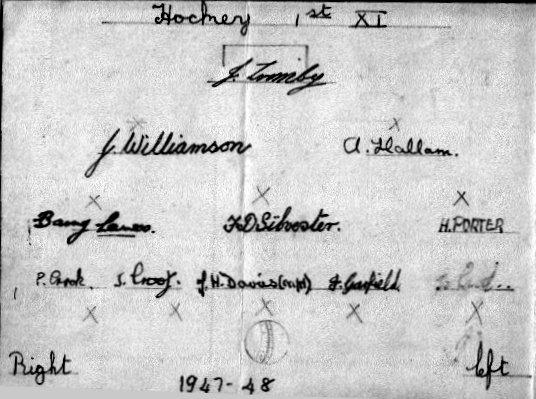 Hockey 1st XI
J. Trimby
J. Williamson A. Hallam.
Barry Lanes. F.D Silvester. H. PORTER
P. Crook. J. Croox. J. H. Davis (capt) J. Garfield.
Right left
1947-48